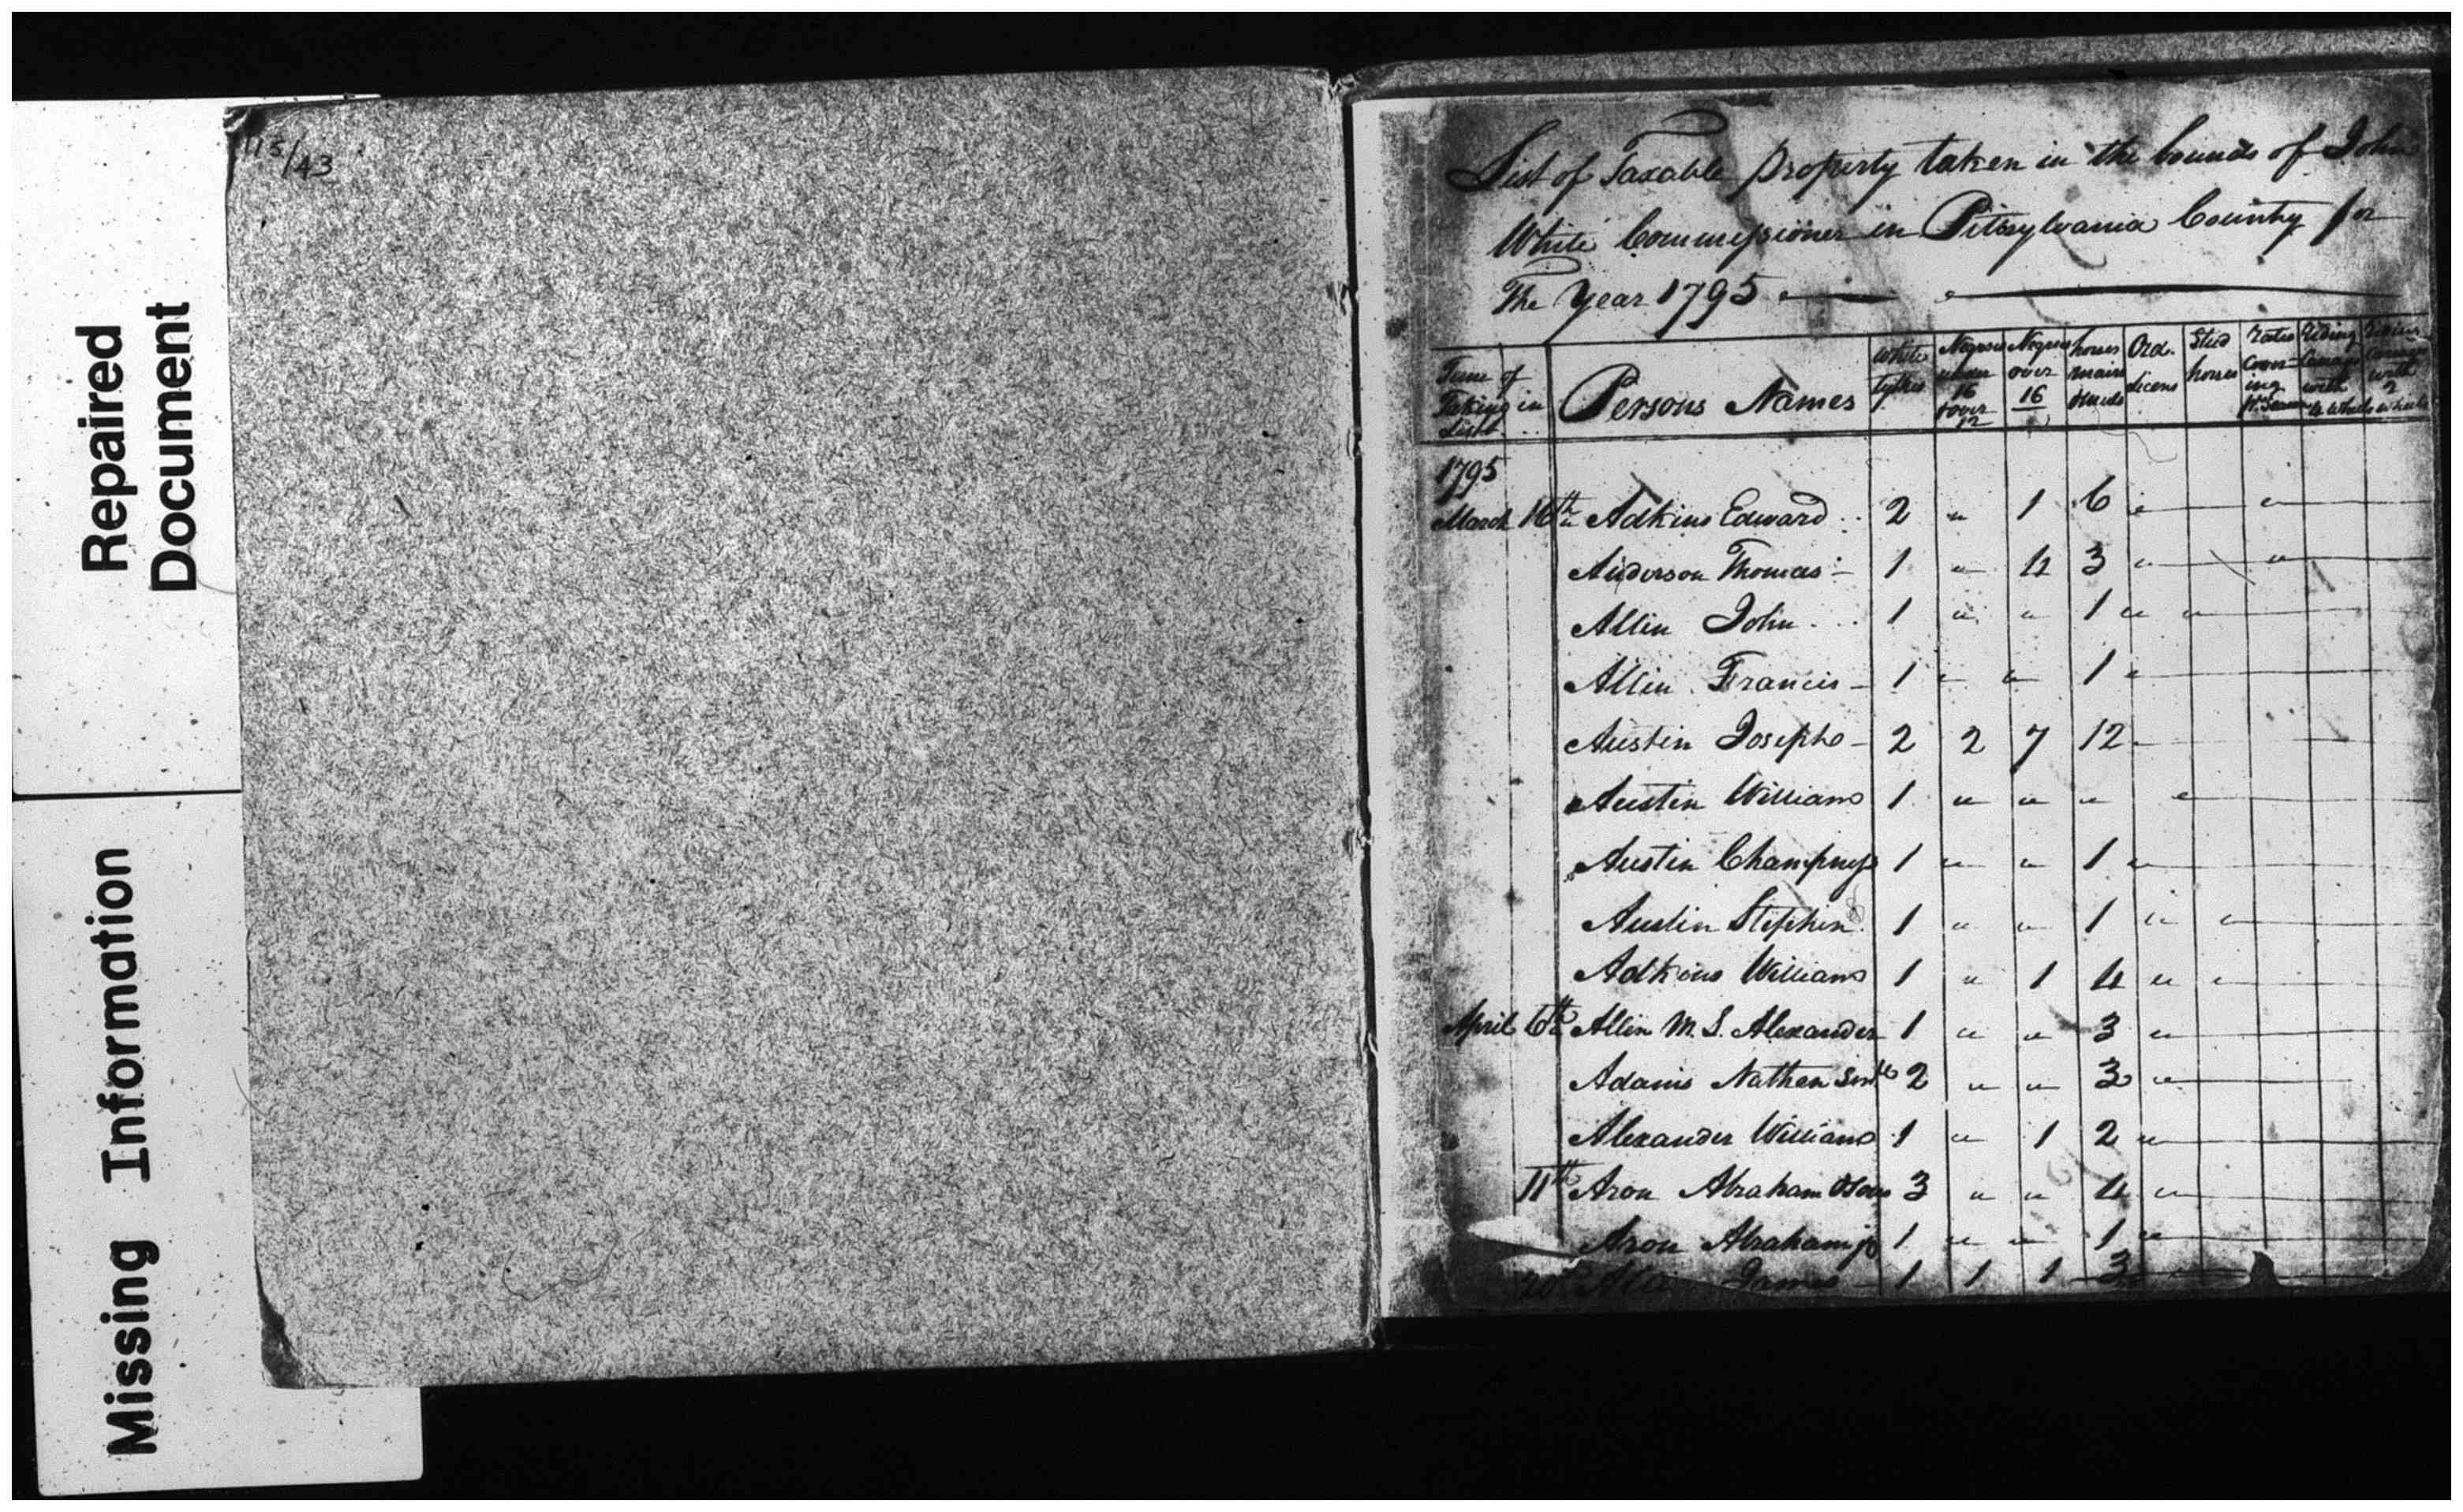 Repaired
Document
Missing Information
115/43
List of Taxable property taken in the bounds of John
White Commissioner in Pitsylvania County for
The Year 1795
Time of Taking in List
Persons Names
White tythes
Negroes under 16 & over 12
Negroes over 16
horses mares & mules
Ord. licens
Stud horses
Rates Covering
Riding with 4 Wheels
with 2 wheels
1795
March 16th Adkins Edward 2 " 1 6 "
Anderson Thomas 1 " 4 3 " "
Allin John 1 " " 1 " "
Allin Francis 1 " " 1 "
Austin Joseph 2 2 7 12
Austin William 1 " " " "
Austin Champness 1 " " 1 "
Austin Stephen 1 " " 1 " "
Adkins William 1 " 1 4 " "
April 6th Allin M. S. Alexander 1 " " 3 "
Adams Nathan 2 " " 3 "
Alexander William 1 " 1 2 "
11th Aron Abraham 3 " " 4 "
Aron Abraham jr 1 " " 1 "
20th James 1 1 1 3 "